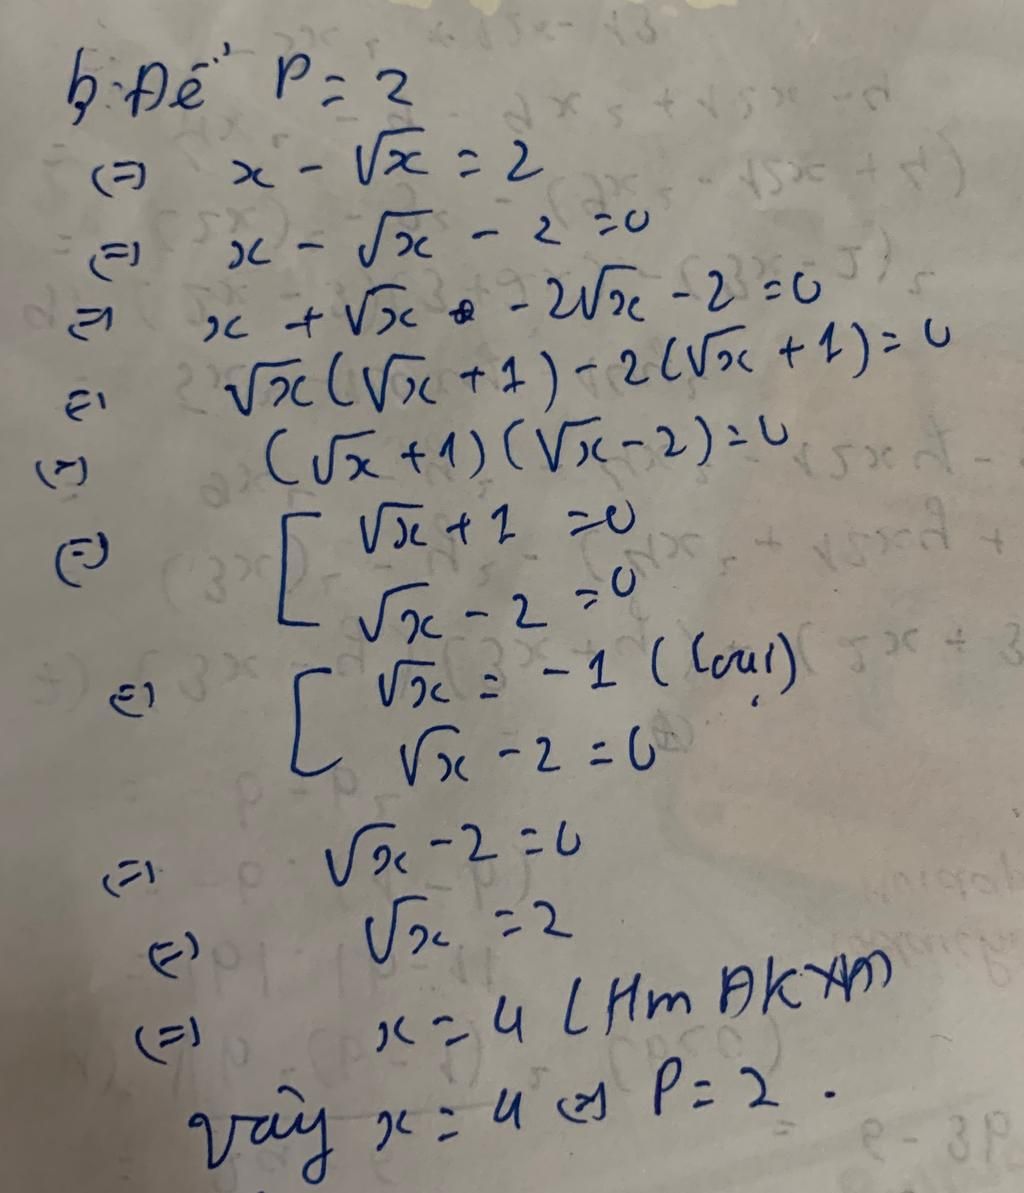 b, Để P = 2
(=) x - √x = 2
(=) x - √x - 2 = 0
(=) x + √x - 2√x - 2 = 0
(=) √x(√x + 1) - 2(√x + 1) = 0
(=) (√x + 1)(√x - 2) = 0
(=) [ √x + 1 = 0
√x - 2 = 0
(=) [ √x = -1 (loại)
√x - 2 = 0
(=) √x - 2 = 0
(=) √x = 2
(=) x = 4 (tm ĐKXĐ)
Vậy x = 4 (=) P = 2.